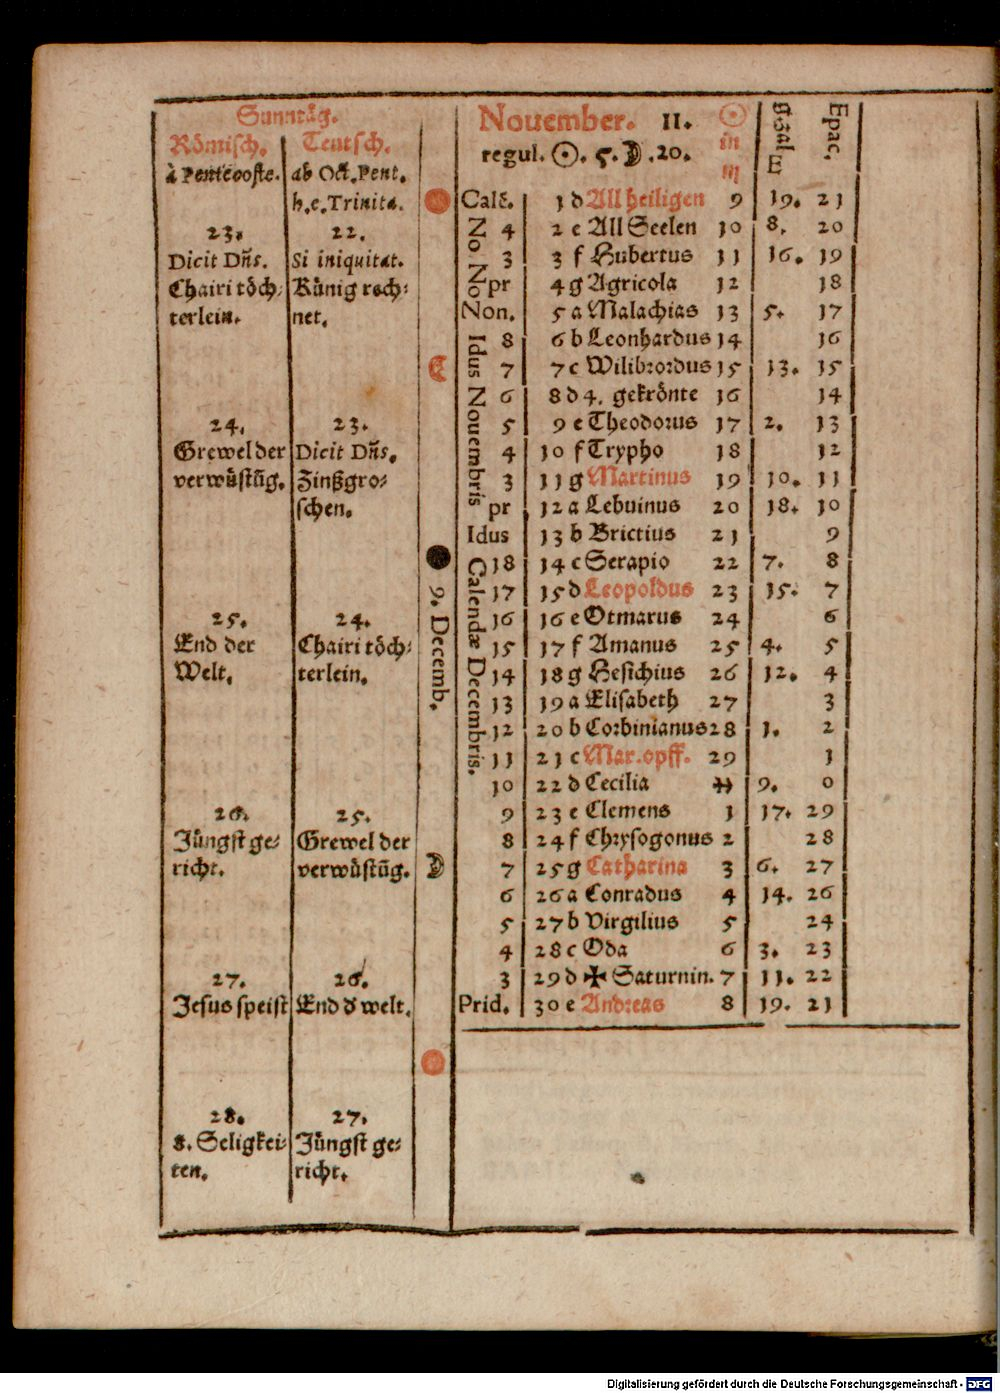 Sunntäg.
Römisch. Teutsch.
à Pentecoste. ab Oct. Pent.
h.e. Trinita.
23. 22.
Dicit Dñs. Si iniquitat.
Chairi töch- Künig rech-
terlein. net.
24. 23.
Grewel der Dicit Dñs.
verwüstũg. Zinßgro-
schen.
25. 24.
End der Chairi töch-
Welt. terlein.
26. 25.
Jüngst ge- Grewel der
richt. verwüstũg.
27. 26.
Jesus speist End d welt.
28. 27.
8. Seligkei- Jüngst ge-
ten. richt.
9. Decemb.
Nouember. 11. ☉ in ♏ g. zal E Epac.
regul. ☉. 5. ☽. 20.
No No
Idus Nouembris
Calendæ Decembris.
Cal. 1 d All heiligen 9 19. 21
4 2 e All Seelen 10 8. 20
3 3 f Hubertus 11 16. 19
pr 4 g Agricola 12 18
Non. 5 a Malachias 13 5. 17
8 6 b Leonhardus 14 16
7 7 c Wilibrordus 15 13. 15
6 8 d 4. gekrönte 16 14
5 9 e Theodorus 17 2. 13
4 10 f Trypho 18 12
3 11 g Martinus 19 10. 11
pr 12 a Lebuinus 20 18. 10
Idus 13 b Brictius 21 9
18 14 c Serapio 22 7. 8
17 15 d Leopoldus 23 15. 7
16 16 e Otmarus 24 6
15 17 f Amanus 25 4. 5
14 18 g Hesichius 26 12. 4
13 19 a Elisabeth 27 3
12 20 b Corbinianus 28 1. 2
11 21 c Mar. opff. 29 1
10 22 d Cecilia ♐ 9. 0
9 23 e Clemens 1 17. 29
8 24 f Chrysogonus 2 28
7 25 g Catharina 3 6. 27
6 26 a Conradus 4 14. 26
5 27 b Virgilius 5 24
4 28 c Oda 6 3. 23
3 29 d ✠ Saturnin. 7 11. 22
Prid. 30 e Andreas 8 19. 21
Digitalisierung gefördert durch die Deutsche Forschungsgemeinschaft - DFG